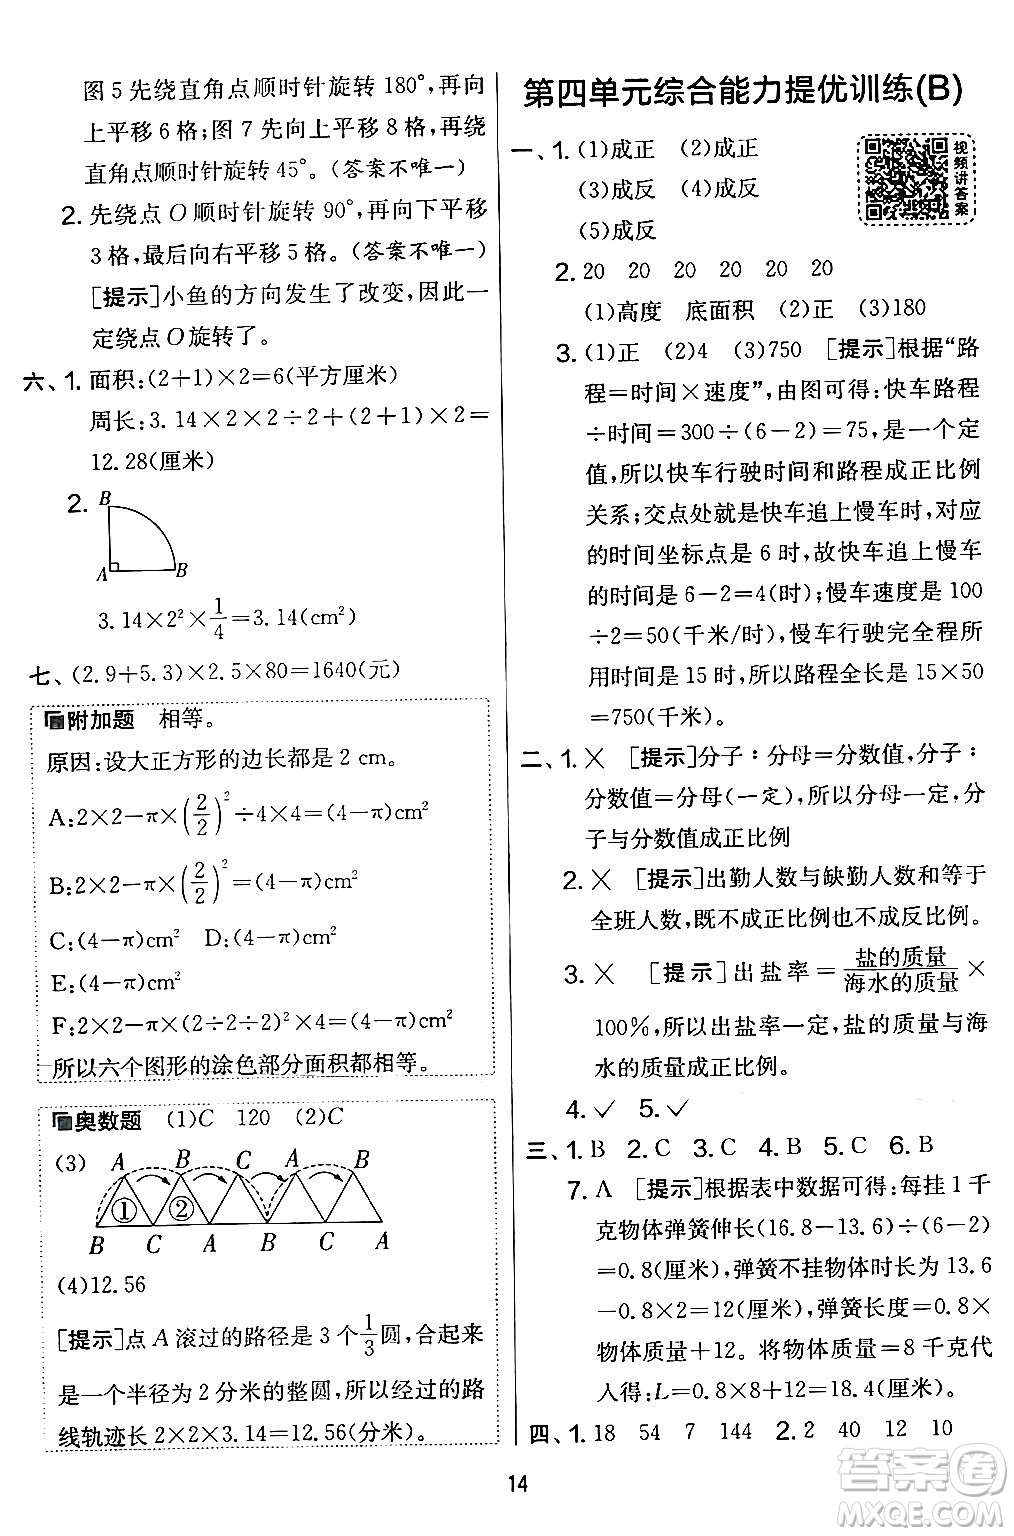 图 5 先绕直角点顺时针旋转 180°,再向
上平移 6 格;图 7 先向上平移 8 格,再绕
直角点顺时针旋转 45°。(答案不唯一)
2. 先绕点 O 顺时针旋转 90°,再向下平移
3 格,最后向右平移 5 格。(答案不唯一)
[提示]小鱼的方向发生了改变,因此一
定绕点 O 旋转了。
六、1. 面积:(2+1)×2=6(平方厘米)
周长:3.14×2×2÷2+(2+1)×2=
12.28(厘米)
2.
B
A B
3.14×2²×1/4=3.14(cm²)
七、(2.9+5.3)×2.5×80=1640(元)
附加题 相等。
原因:设大正方形的边长都是 2 cm。
A:2×2−π×(2/2)²÷4×4=(4−π)cm²
B:2×2−π×(2/2)²=(4−π)cm²
C:(4−π)cm² D:(4−π)cm²
E:(4−π)cm²
F:2×2−π×(2÷2÷2)²×4=(4−π)cm²
所以六个图形的涂色部分面积都相等。
奥数题 (1)C 120 (2)C
(3) A B C A B
① ②
B C A B C A
(4)12.56
[提示]点 A 滚过的路径是 3 个1/3圆,合起来
是一个半径为 2 分米的整圆,所经过的路
线轨迹长 2×2×3.14=12.56(分米)。
第四单元综合能力提优训练(B)
视频讲答案
一、1. (1)成正 (2)成正
(3)成反 (4)成反
(5)成反
2. 20 20 20 20 20 20
(1)高度 底面积 (2)正 (3)180
3. (1)正 (2)4 (3)750 [提示]根据“路
程=时间×速度”,由图可得:快车路程
÷时间=300÷(6−2)=75,是一个定
值,所以快车行驶时间和路程成正比例
关系;交点处就是快车追上慢车时,对应
的时间坐标点是 6 时,故快车追上慢车
的时间是 6−2=4(时);慢车速度是 100
÷2=50(千米/时),慢车行驶完全程所
用时间是 15 时,所以路程全长是 15×50
=750(千米)。
二、1. × [提示]分子∶分母=分数值,分子∶
分数值=分母(一定),所以分母一定,分
子与分数值成正比例
2. × [提示]出勤人数与缺勤人数和等于
全班人数,既不成正比例也不成反比例。
3. × [提示]出盐率=盐的质量/海水的质量×
100%,所以出盐率一定,盐的质量与海
水的质量成正比例。
4. ✓ 5. ✓
三、1. B 2. C 3. C 4. B 5. C 6. B
7. A [提示]根据表中数据可得:每挂 1 千
克物体弹簧伸长(16.8−13.6)÷(6−2)
=0.8(厘米),弹簧不挂物体时长为 13.6
−0.8×2=12(厘米),弹簧长度=0.8×
物体质量+12。将物体质量=8 千克代
入得:L=0.8×8+12=18.4(厘米)。
四、1. 18 54 7 144 2. 2 40 12 10
14
答案圈
MXQE.COM